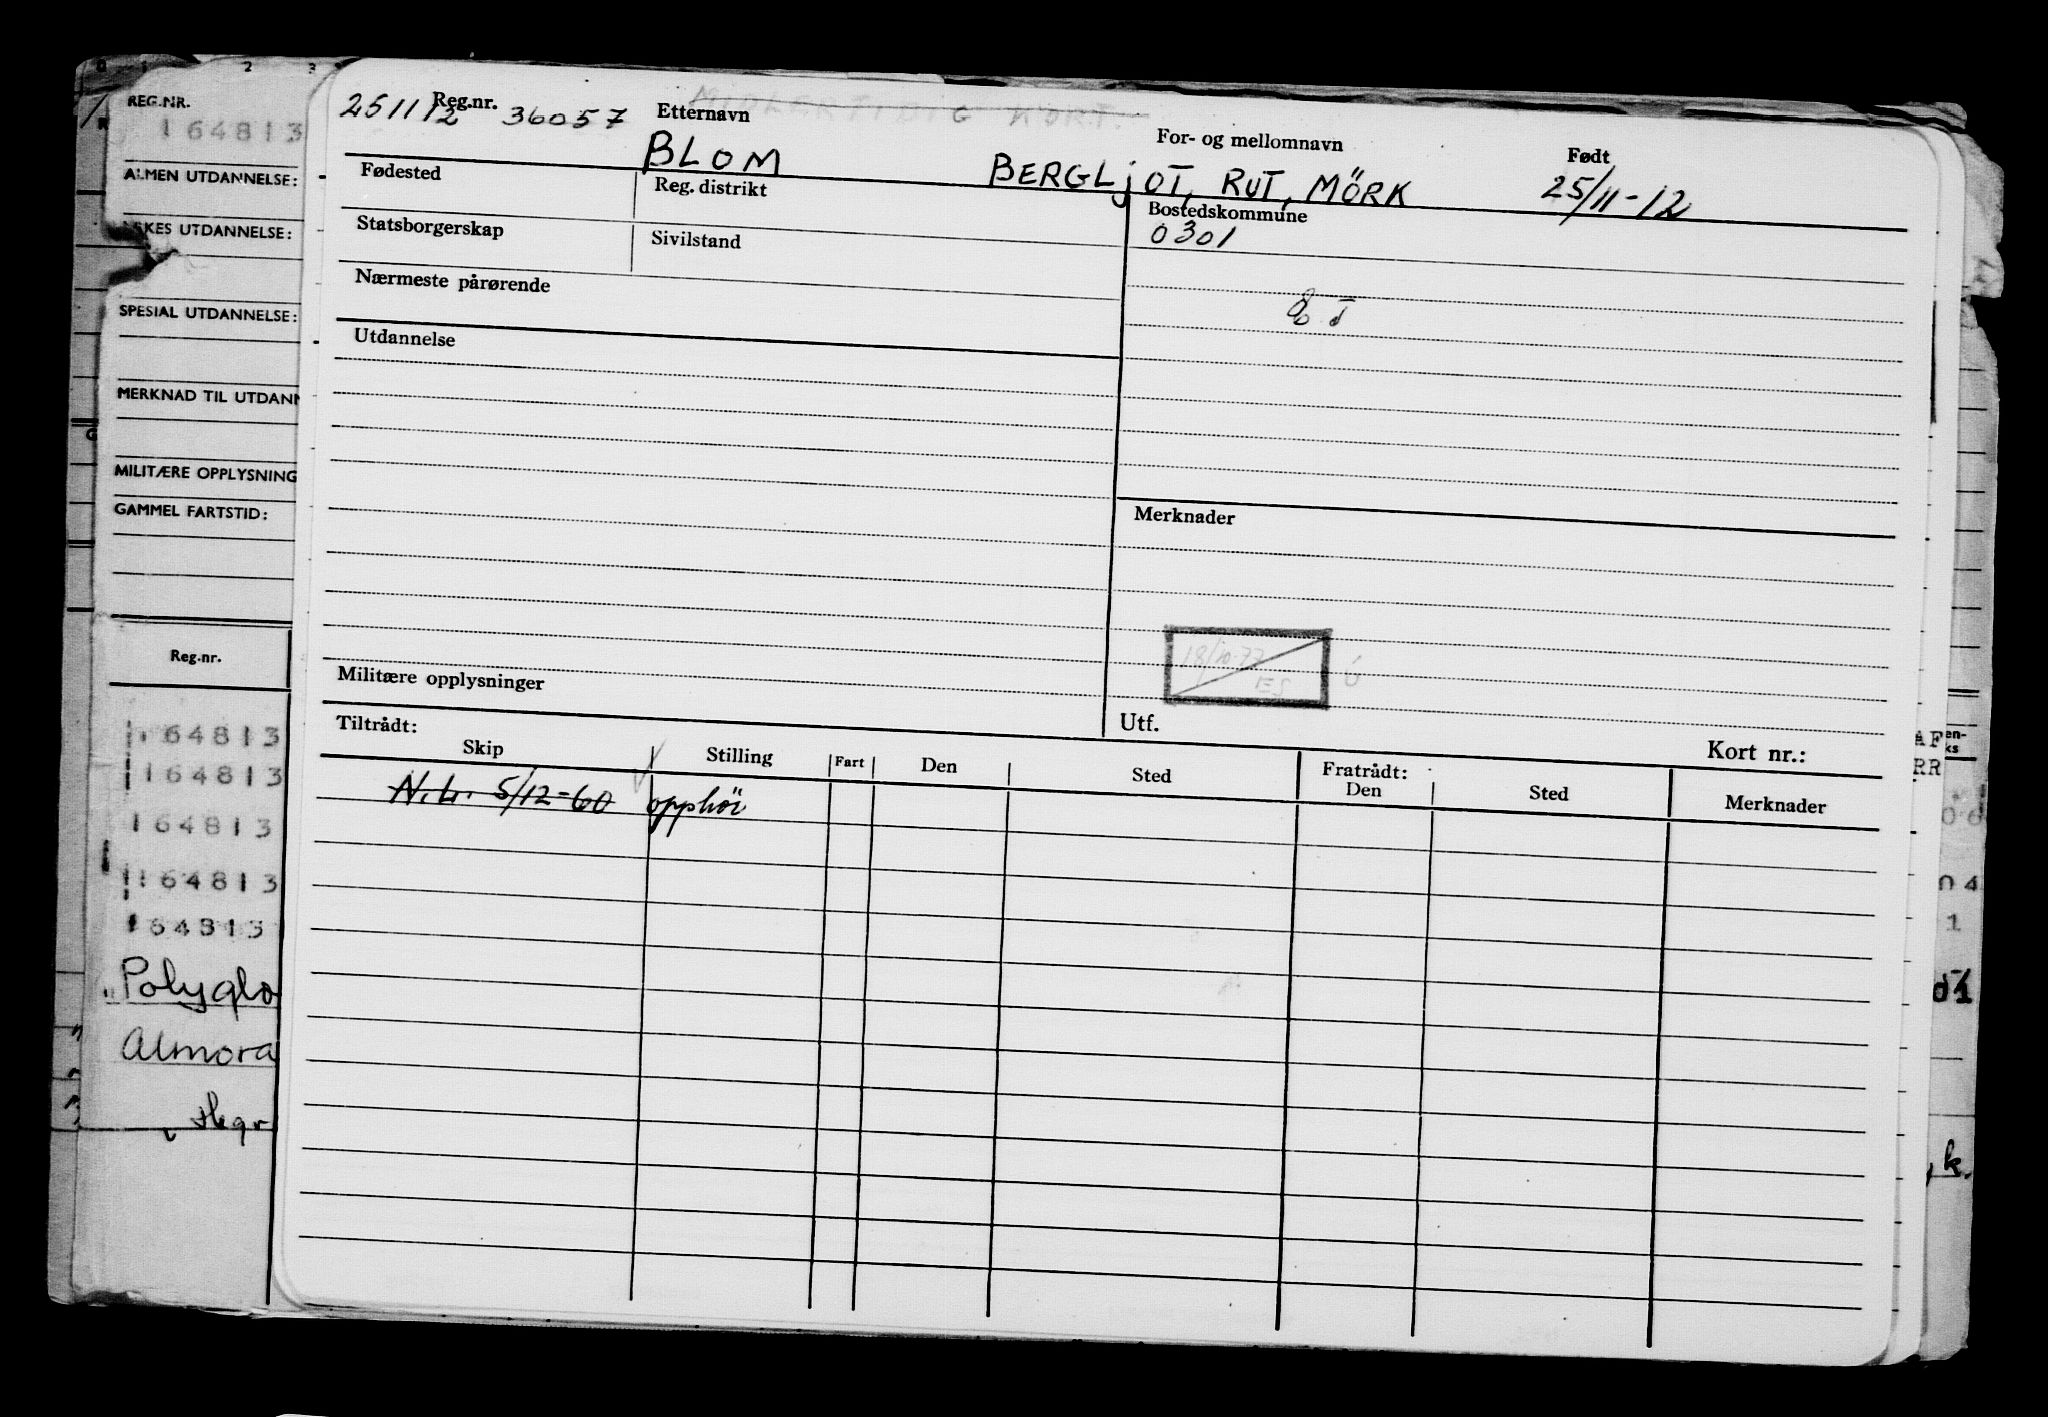 REG.NR.
164813
ALMEN UTDANNELSE:
UTDANNELSE:
SPESIAL UTDANNELSE:
MERKNAD TIL UTDANN
MILITÆRE OPPLYSNING
GAMMEL FARTSTID:
Reg.nr.
164813
164813
164813
164813
164813
Polyglo
Almora
MIDLERTIDIG KORT.
251112 Reg.nr. 36057 Etternavn For- og mellomnavn Født
BLOM BERGLJOT, RUT, MÖRK 25/11-12
Fødested Reg. distrikt Bostedskommune
0301
Statsborgerskap Sivilstand
Nærmeste pårørende
Utdannelse
Merknader
18/10-77
ES
Militære opplysninger
Utf.
Kort nr.:
Tiltrådt:
Skip Stilling Fart Den Sted Fratrådt: Den Sted Merknader
N.L. 5/12-60 opphör